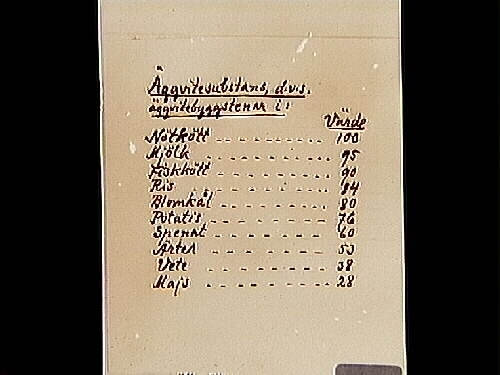 Äggvitesubstans, d.v.s.
äggvitebyggstenar i:
Värde
Nötkött - - - - - - - - - - - 100
Mjölk - - - - - - - - - - - 95
Fiskkött - - - - - - - - - - - 90
Ris - - - - - - - - - - - 84
Blomkål - - - - - - - - - - - 80
Potatis - - - - - - - - - - - 76
Spenat - - - - - - - - - - - 60
Ärter - - - - - - - - - - - 53
Vete - - - - - - - - - - - 38
Majs - - - - - - - - - - - 28